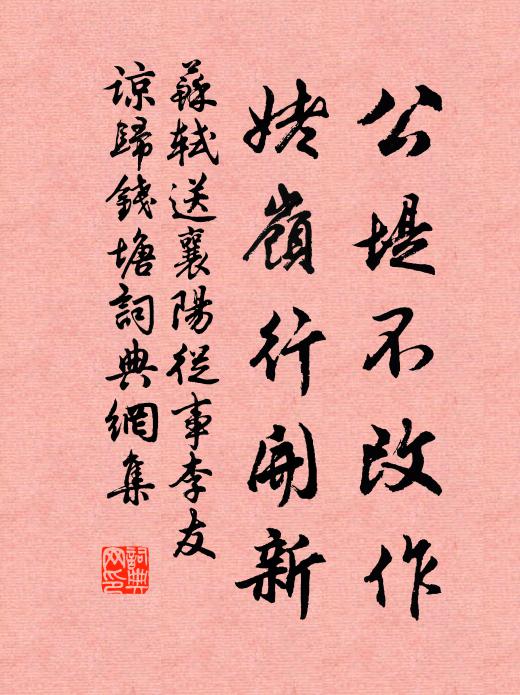 公堤不改作
姥嶺行開新
蘇軾送襄陽從事李友
諒歸錢塘詞典網集
詞典
网印